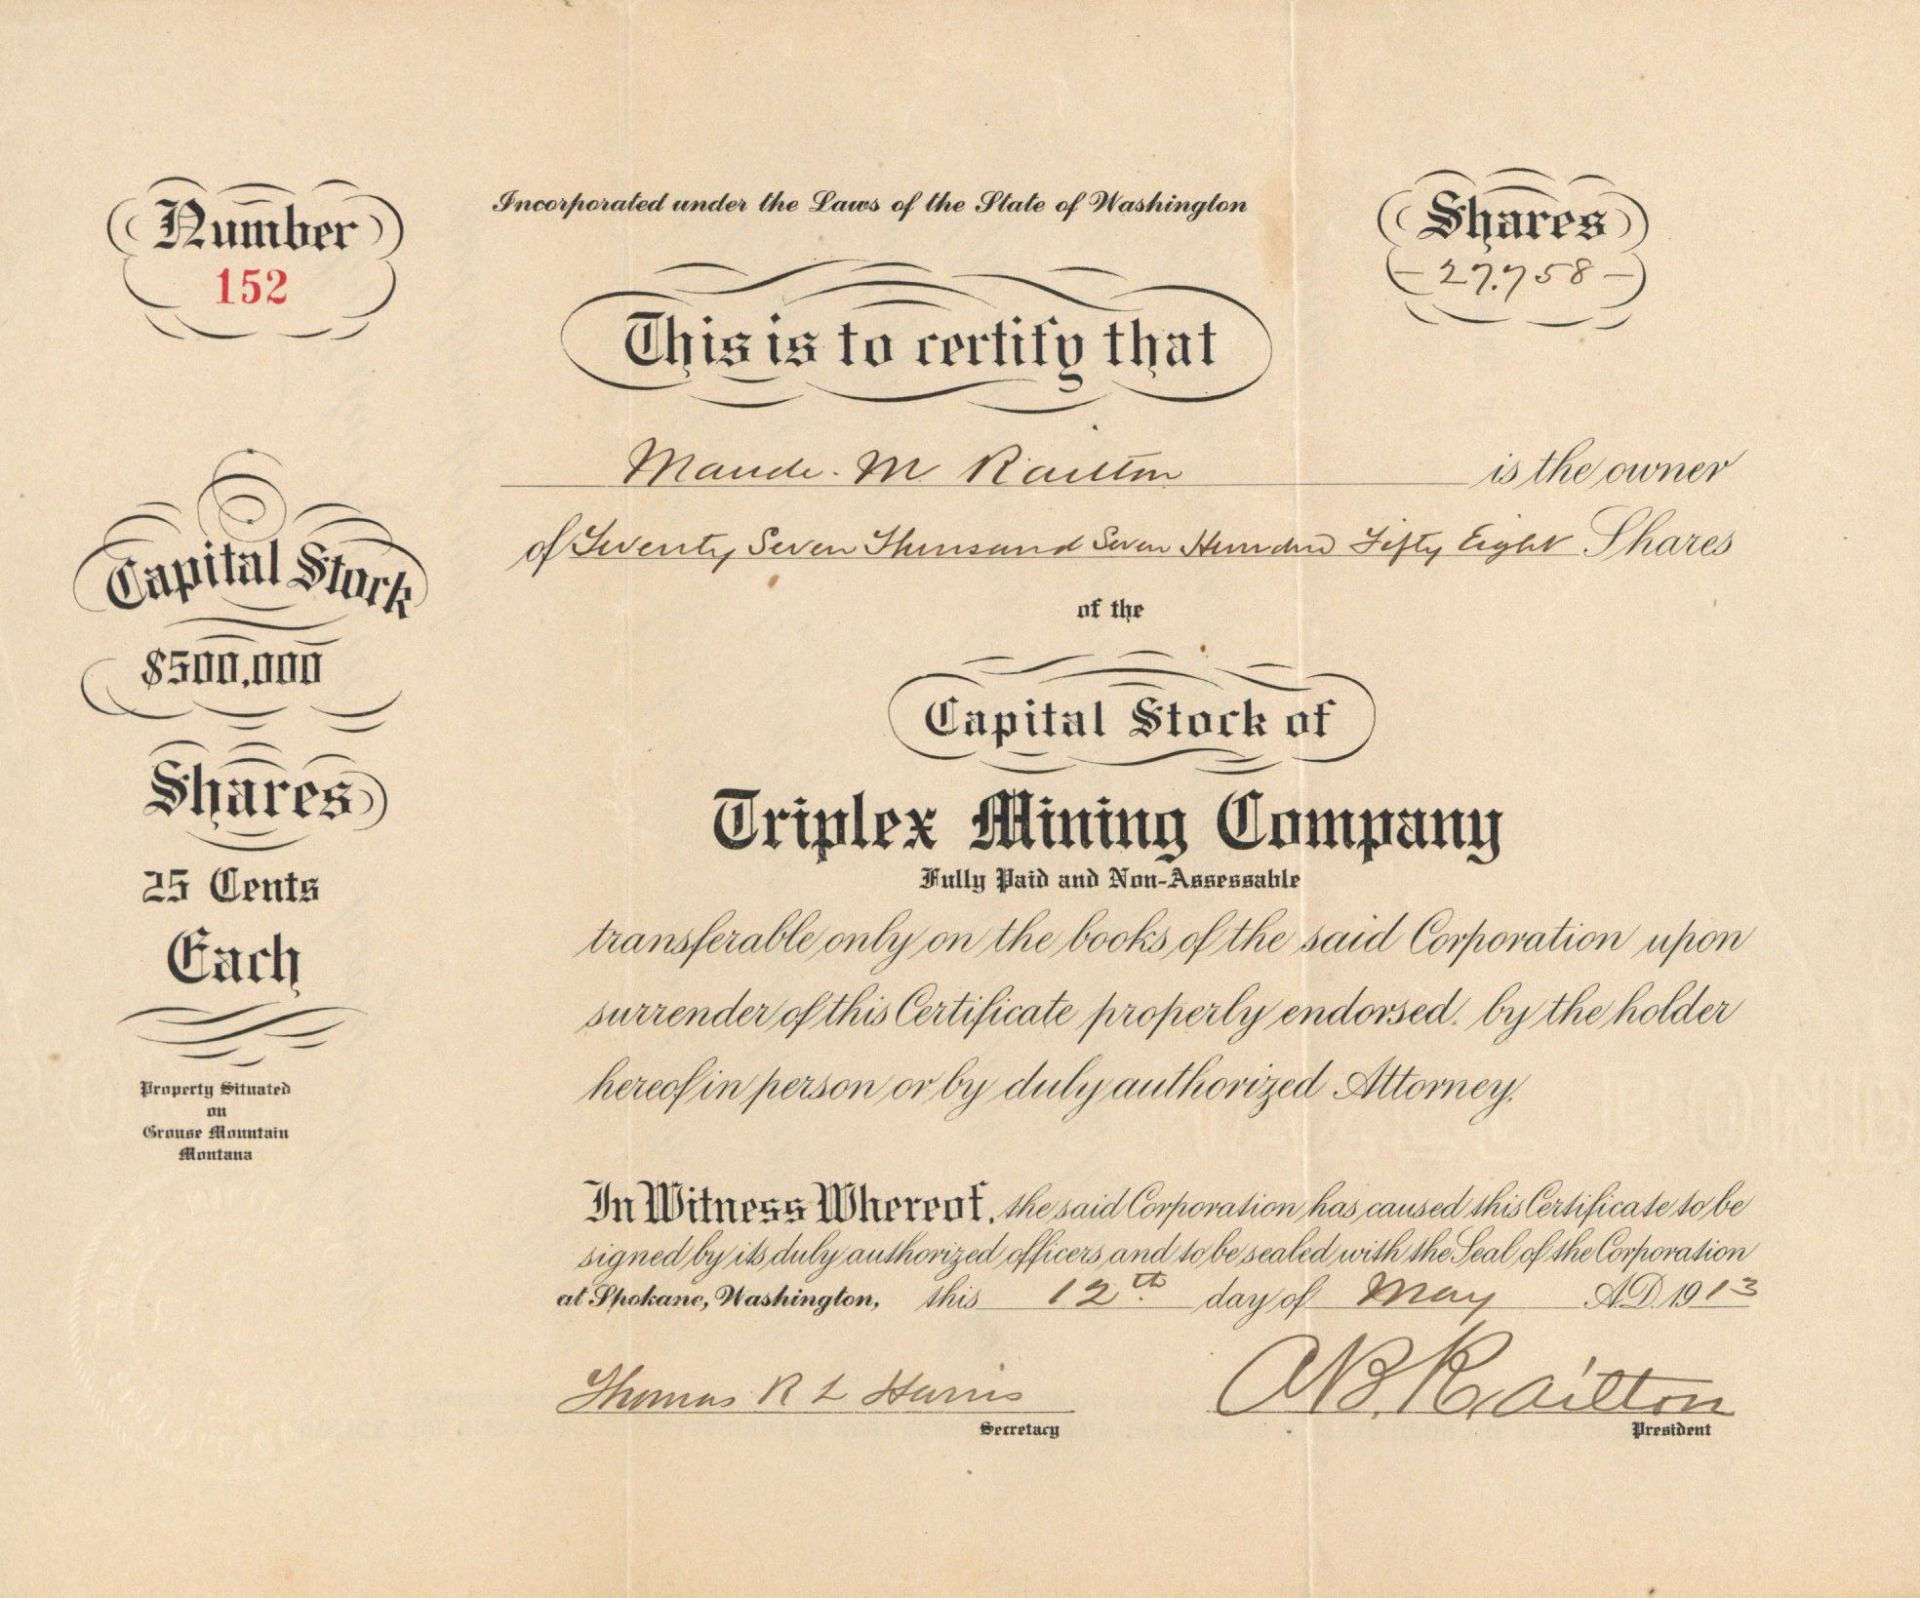 Number
152
Incorporated under the Laws of the State of Washington
Shares
- 27,758 -
This is to certify that
Maude. M Railton is the owner
of Twenty Seven Thousand Seven Hundred Fifty Eight Shares
of the
Capital Stock of
Triplex Mining Company
Fully Paid and Non-Assessable
transferable only on the books of the said Corporation upon
surrender of this Certificate properly endorsed. by the holder
hereof in person or by duly authorized Attorney.
In Witness Whereof, the said Corporation has caused this Certificate to be
signed by its duly authorized officers and to be sealed with the Seal of the Corporation
at Spokane, Washington, this 12th day of May A.D. 1913
Thomas R L Harris
Secretary
A B. Railton
President
Capital Stock
$500,000
Shares
25 Cents
Each
Property Situated
on
Grouse Mountain
Montana